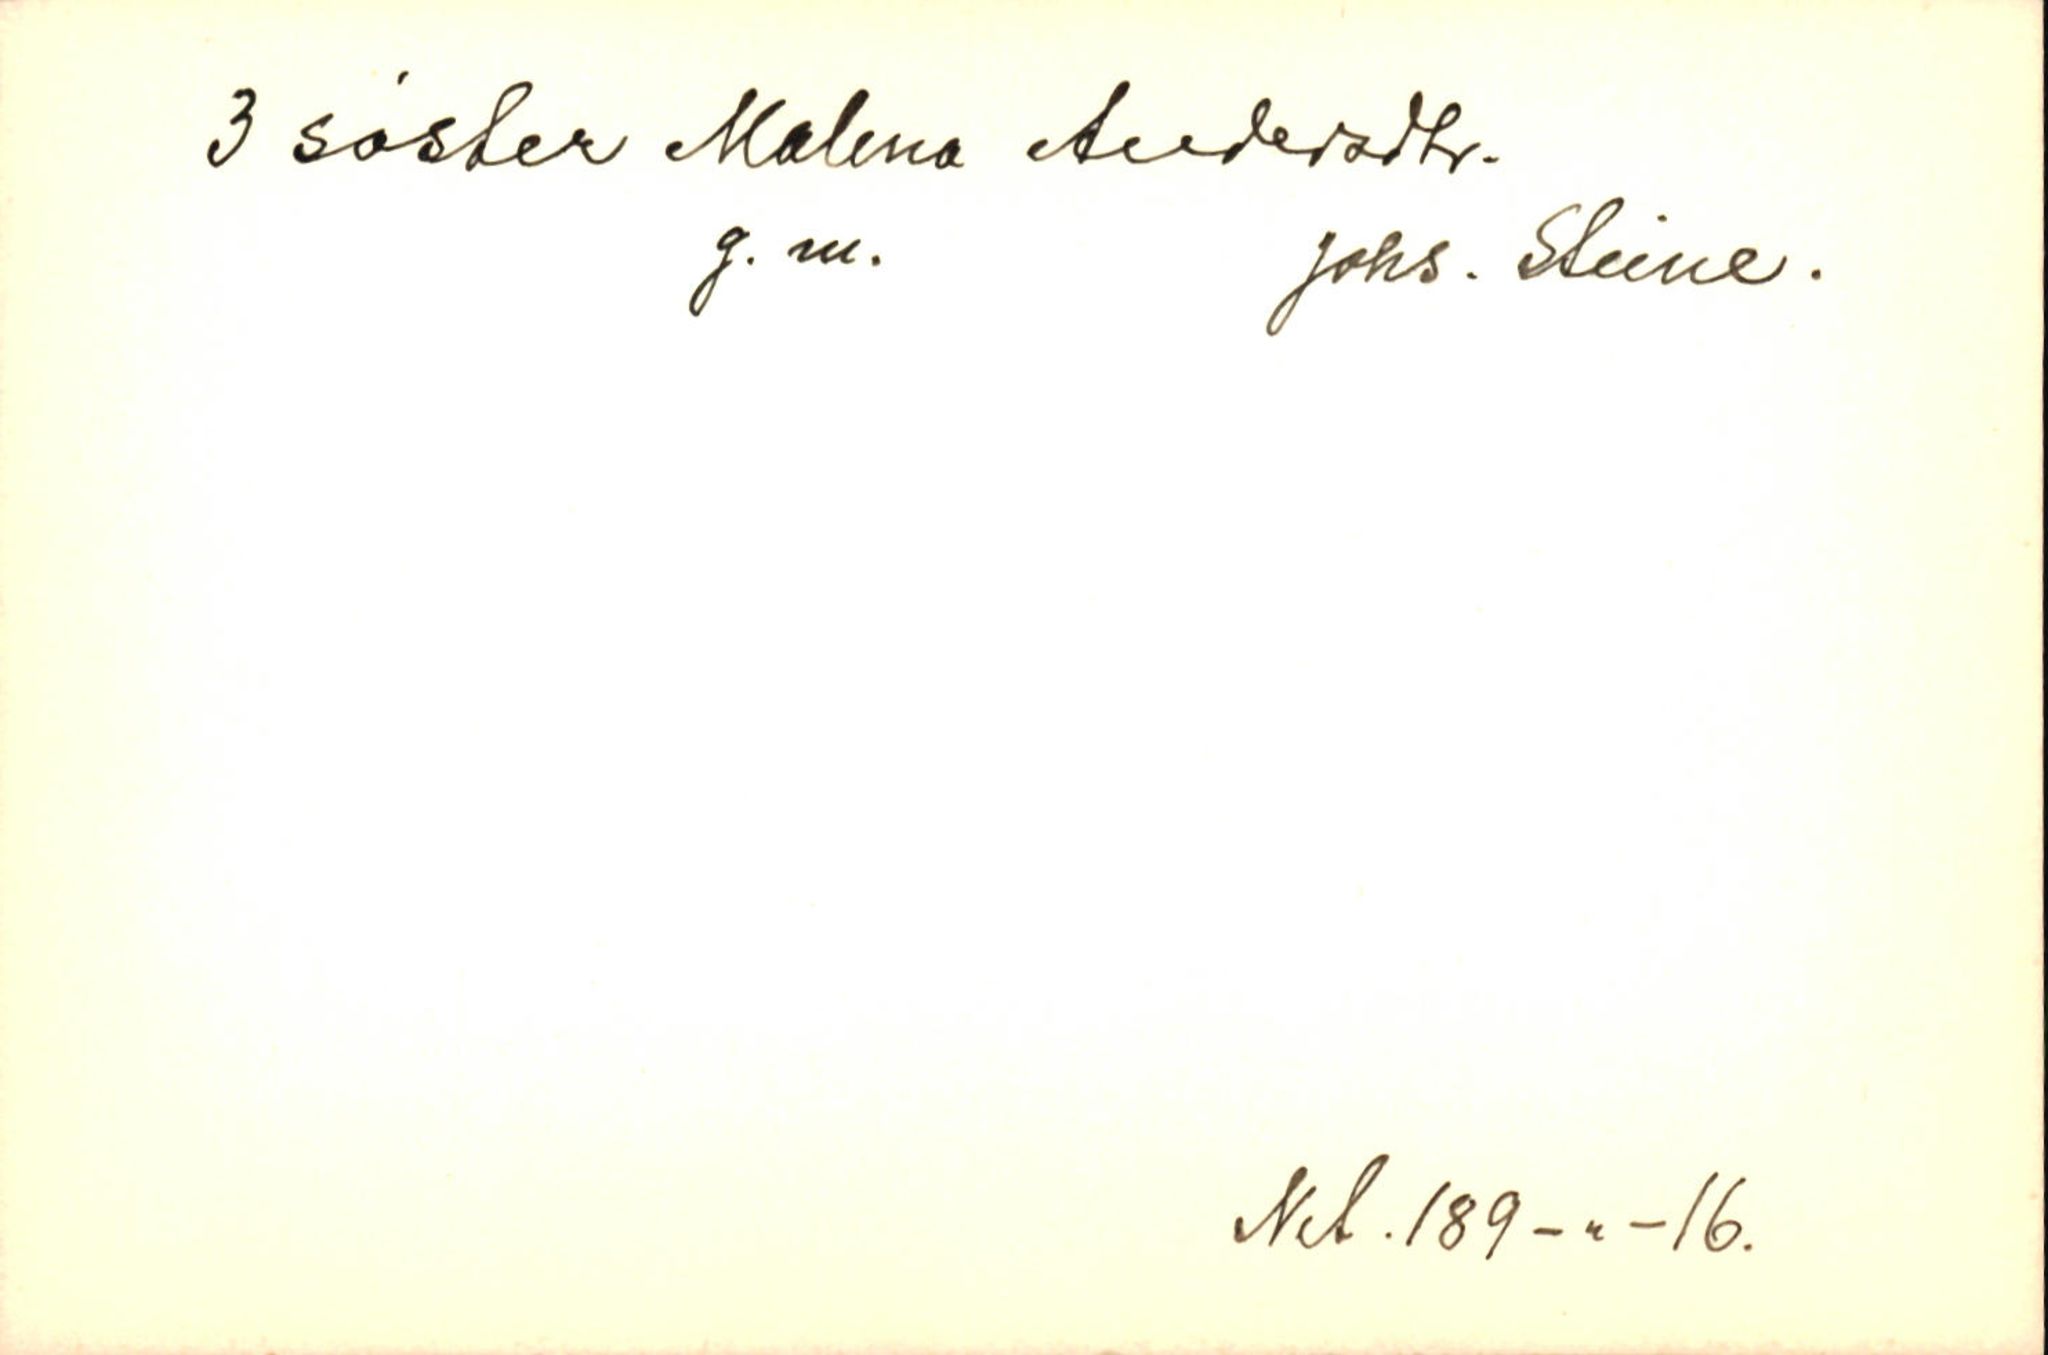 3 søster Malena Andersdtr.
g. m. Johs. Steine.
Net. 189 - " - 16.